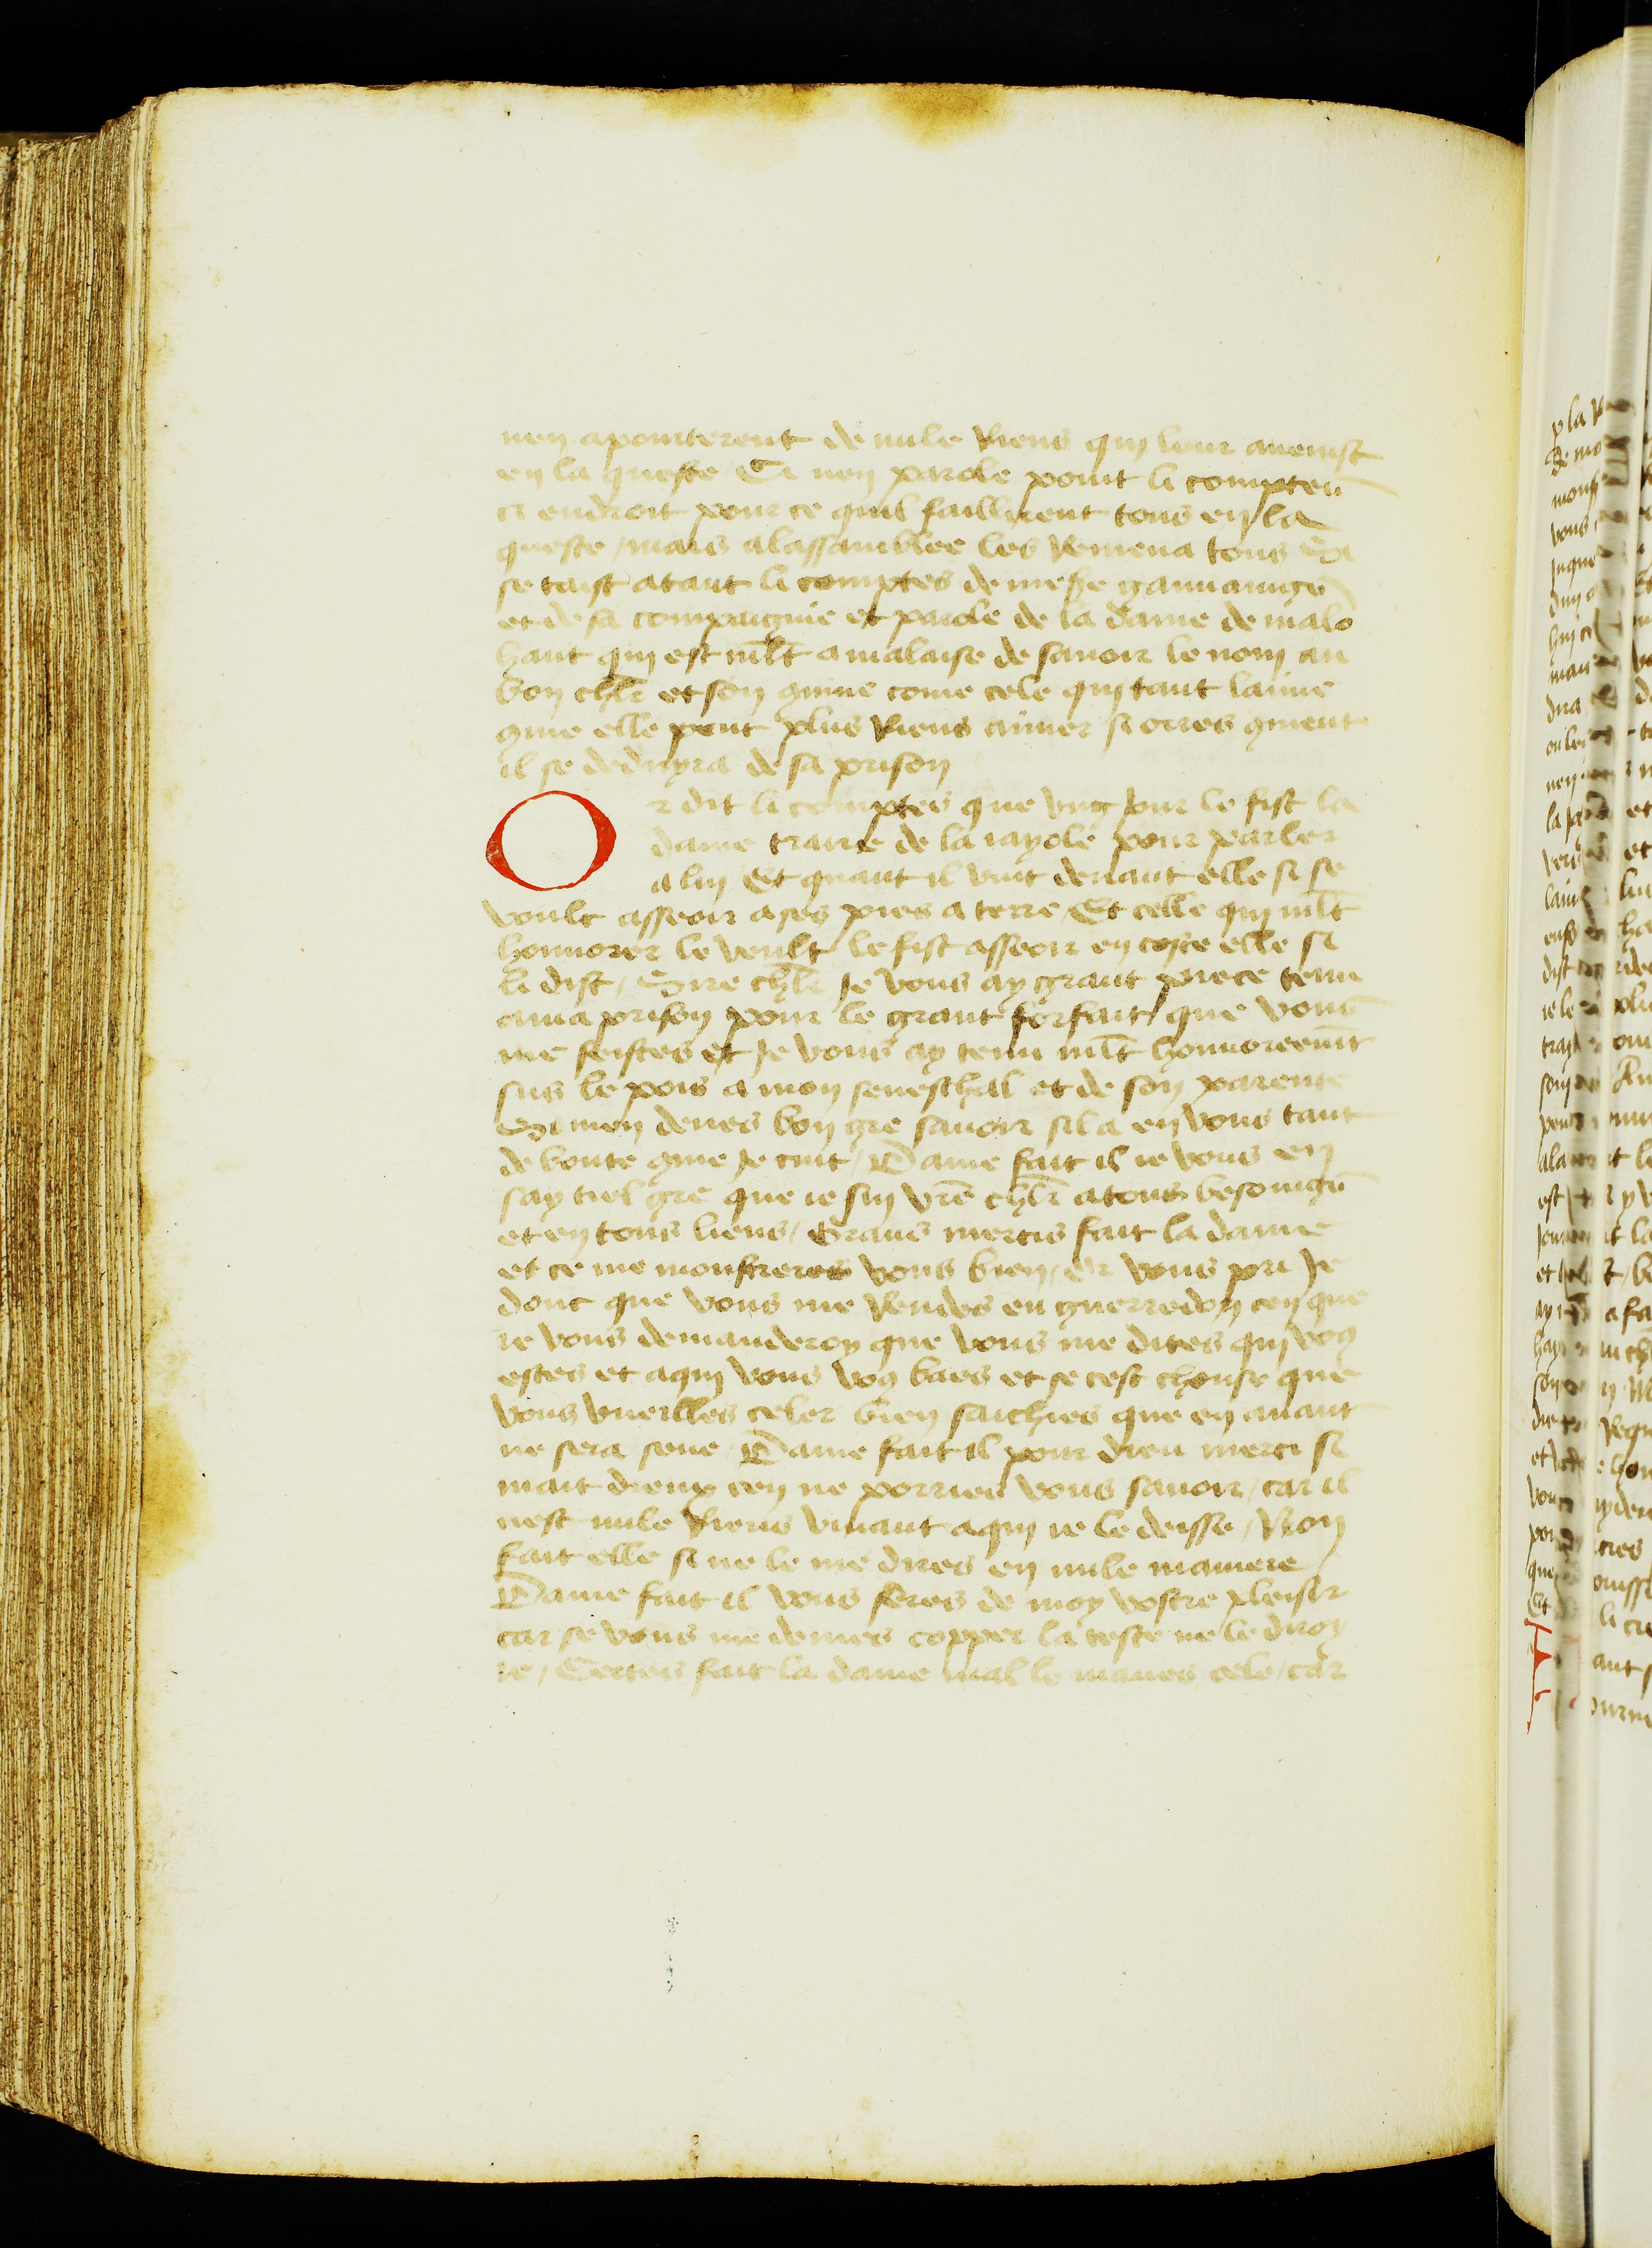 nen apourterent de nule Riens qui leur auenist
en la queste / Si nen parole point li comptes
ci endroit pour ce quil faillirent tous en la
queste / mais alassamblee les Remena tous Si
se taist atant li comptes de messe gauuaings
et de sa compaignie et parole de la dame de malo
haut qui est mlt amalaise de sauoir le nom au
bon chlr et son quine come cele qui tant laime
que elle peut plus Riens aimer si orres qment
il se deduyra de sa prison
Or dit li comptes que vng Jour le fist la
dame traire de la iayole pour parler
a luy / Et quant il vint deuant elle si se
voult asseoir ases pies a terre / Et celle qui mlt
honnorer le voult le fist asseoir en coste elle si
li dist / Sire chlr Je vous ay grant piece tenu
en ma prison pour le grant forfait que vous
me feistes et Je vous ay tenu mlt honnoreemt
sus le pois a mon seneschal et de son parente
Si men deues bon gre sauoir sil a en vous tant
de bonte que Je cuit / Dame fait il ie vous en
say tiel gre que ie suy vre chlr atous besoings
et en tous lieus / Grans mercis fait la dame
et ce me monstreres vous bien / Or vous pri Je
donc que vous me Rendes en guerredon cen que
ie vous demanderoy que vous me dites qui vos
estes et aqui vous vos baes et se cest chouse que
vous vueilles celer bien saichies que en auant
ne sera seue / Dame fait il pour dieu merci si
mait dieux cen ne porries vous sauoir / car il
nest nule Riens viuant aqui ie le deisse / Non
fait elle si ne le me dires en nule maniere
Dame fait il vous feres de moy vostre plesir
car se vous me deuies copper la teste ne le diroy
ie / Certes fait la dame mal le maues cele / car